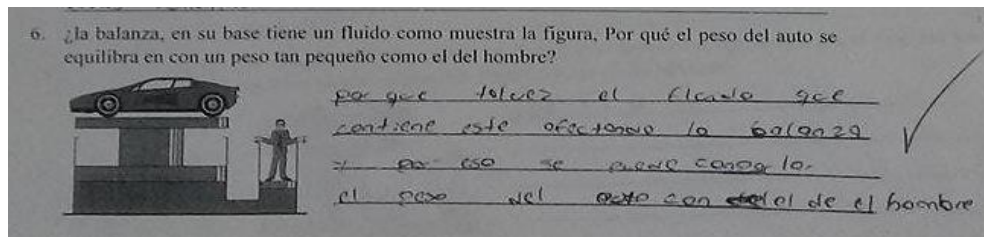 6. ¿la balanza, en su base tiene un fluido como muestra la figura, Por qué el peso del auto se
equilibra en con un peso tan pequeño como el del hombre?
por que talvez el fluido que
contiene este afectando la balanza
y por eso se puede
el peso del auto con el de el hombre